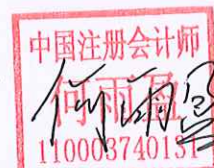 中国注册会计师
何雨盈
110003740131